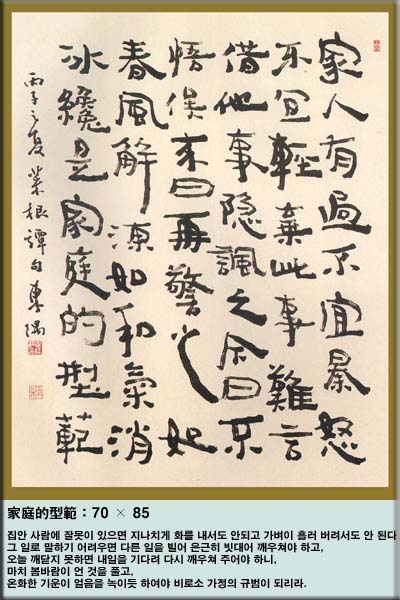 家人有過不宜暴怒
不宜輕棄此事難言
借他事隱諷之今日不
悟俟来日再警之如
春風解凍如和氣消
冰纔是家庭的型範
丙子之夏菜根譚句東隅
家庭的型範 : 70 × 85
집안 사람에 잘못이 있으면 지나치게 화를 내서도 안되고 가벼이 흘러 버려서도 안 된다
그 일로 말하기 어려우면 다른 일을 빌어 은근히 빗대어 깨우쳐야 하고,
오늘 깨닫지 못하면 내일을 기다려 다시 깨우쳐 주어야 하니,
마치 봄바람이 언 것을 풀고,
온화한 기운이 얼음을 녹이듯 하여야 비로소 가정의 규범이 되리라.